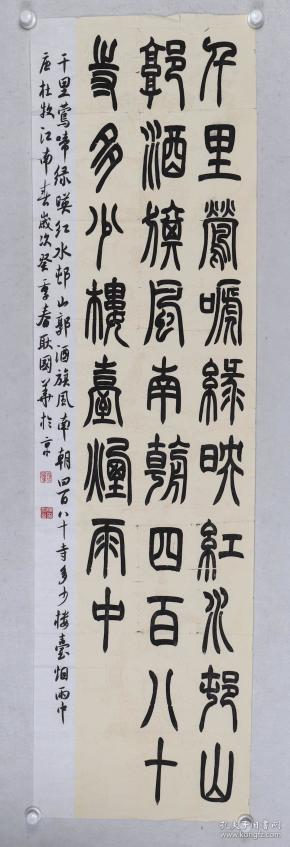 千里鶯嗁綠映紅水邨山
郭酒旗風南朝四百八十
寺多少樓臺煙雨中
千里鶯啼綠暎紅水邨山郭酒旗風南朝四百八十寺多少楼臺烟雨中
唐杜牧江南春歲次癸季春耿國華於京
孔夫子旧书网